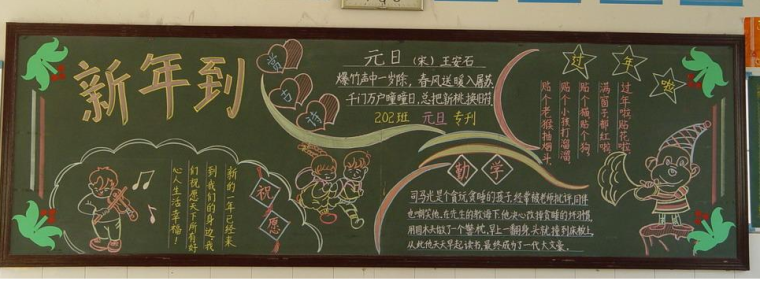 新年到
赏
古
诗
元日 (宋) 王安石
爆竹声中一岁除，春风送暖入屠苏
千门万户曈曈日，总把新桃换旧符
202班 元旦 专刊
过年啦
过年啦贴花啦
满窗子都红啦
贴个猫贴个狗
贴个小孩打溜溜
贴个老猴抽烟头
祝愿
新的一年已经来
到我们的身边，我
们祝愿天下所有好
心人生活幸福！
勤学
司马光是个贪玩贪睡的孩子，经常被老师批评，同伴
也嘲笑他，在先生的教诲下，他决心改掉贪睡的坏习惯，
用圆木头做了个警枕，早上一翻身，头就撞到床板上，
从此他天天早起读书，最终成为了一代大文豪。